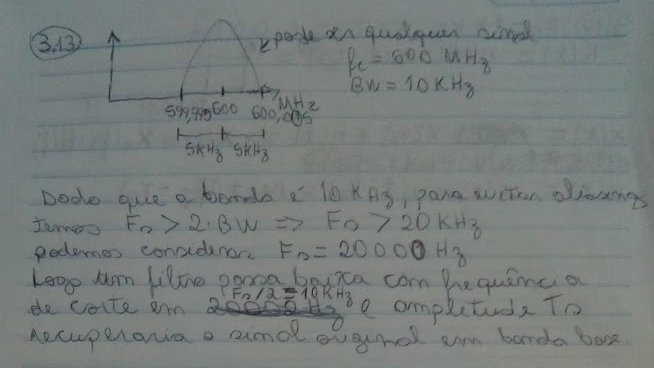 3.13
pode ser qualquer sinal
fc = 600 MHz
BW = 10 KHz
MHz
599,995 600 600,005
5KHz 5KHz
Dado que a banda é 10 KHz, para evitar aliasing,
temos Fs > 2·BW => Fs > 20 KHz
podemos considerar Fs = 20000 Hz
Logo um filtro passa baixa com frequência
Fs/2 = 10 KHz
de corte em 20000 Hz e amplitude Ts
recuperaria o sinal original em banda base.